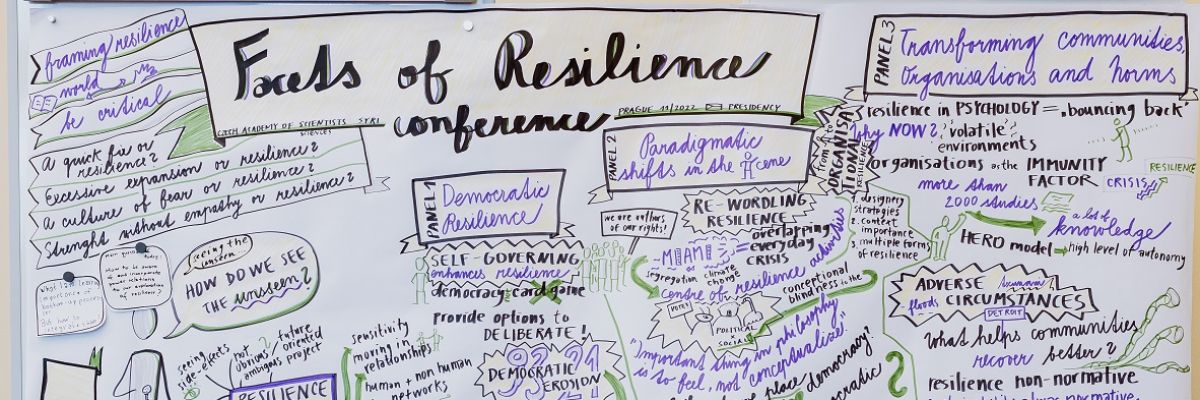 framing resilience
world
be critical
Facets of Resilience
conference
CZECH ACADEMY OF SCIENTISTS SYRI
SCIENCES
PRAGUE 11/2022
PRESIDENCY
A quick fix or
resilience?
Excessive expansion or resilience?
A culture of fear or resilience?
Strenght without empathy or resilience?
seeing the
unseen
HOW DO WE SEE
THE unseen?
seeing
side-effects
not
obvious
ambigous
future
oriented
project
RESILIENCE
sensitivity
moving in
relationships
human + non human
networks
PANEL 1
Democratic
Resilience
SELF-GOVERNING
enhances resilience
democracy card game
provide options to
DELIBERATE!
DEMOCRATIC
EROSION
we are authors
of our rights!
PANEL 2
Paradigmatic
shifts in the
cene
RE-WORDLING
RESILIENCE
MIAMI
segregation climate
change
overlapping
everyday
CRISIS
centre of resilience activities
conceptional
blindness to the
POLITICAL
SOCIAL
"Important thing in philosophy
is to feel, not conceptualize."
place democracy?
PANEL 3
Transforming communities,
Organisations and norms
ORGANISATIONAL
RESILIENCE
resilience in PSYCHOLOGY = "bouncing back"
why NOW? "volatile"
environments
organisations as the IMMUNITY
FACTOR
CRISIS
RESILIENCE
more than
2000 studies
a lot of
knowledge
1. designery
strategies
2. context
importance
3. multiple forms
of resilience
HERO model
high level of autonomy
ADVERSE
CIRCUMSTANCES
floods
DETROIT
what helps communities
recover better?
resilience non-normative